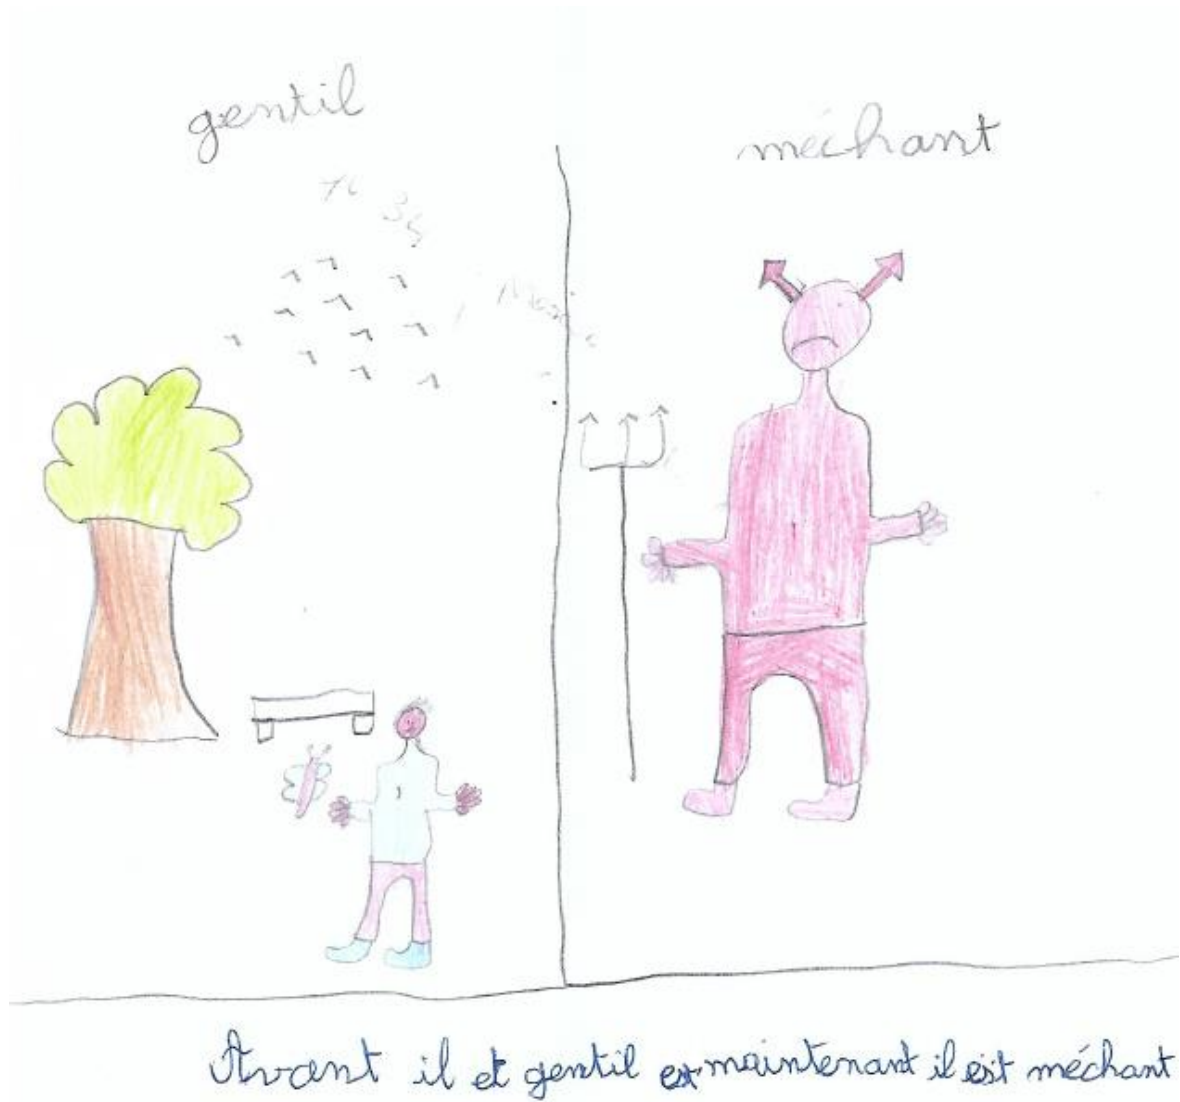 gentil
méchant
Avant il et gentil est maintenant il est méchant